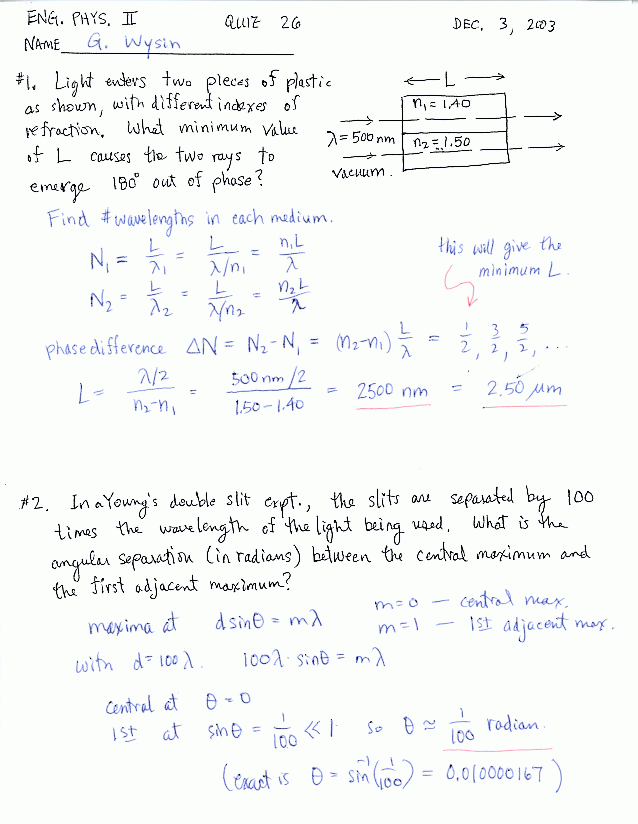 ENG. PHYS. II QUIZ 26 DEC. 3, 2003
NAME G. Wysin
#1. Light enters two pieces of plastic
as shown, with different indexes of
refraction. What minimum value
of L causes the two rays to
emerge 180° out of phase?
L
n₁ = 1.40
λ = 500 nm
n₂ = 1.50
vacuum.
Find # wavelengths in each medium.
N₁ = L/λ₁ = L/(λ/n₁) = n₁L/λ
N₂ = L/λ₂ = L/(λ/n₂) = n₂L/λ
this will give the
minimum L.
phase difference ΔN = N₂ - N₁ = (n₂-n₁) L/λ = 1/2, 3/2, 5/2, ...
L = (λ/2)/(n₂-n₁) = (500 nm/2)/(1.50-1.40) = 2500 nm = 2.50 μm
#2. In a Young's double slit expt., the slits are separated by 100
times the wavelength of the light being used. What is the
angular separation (in radians) between the central maximum and
the first adjacent maximum?
maxima at d sinθ = mλ
m=0 — central max.
m=1 — 1st adjacent max.
with d = 100λ. 100λ · sinθ = mλ
central at θ = 0
1st at sinθ = 1/100 << 1 so θ ≃ 1/100 radian.
(exact is θ = sin⁻¹(1/100) = 0.010000167)